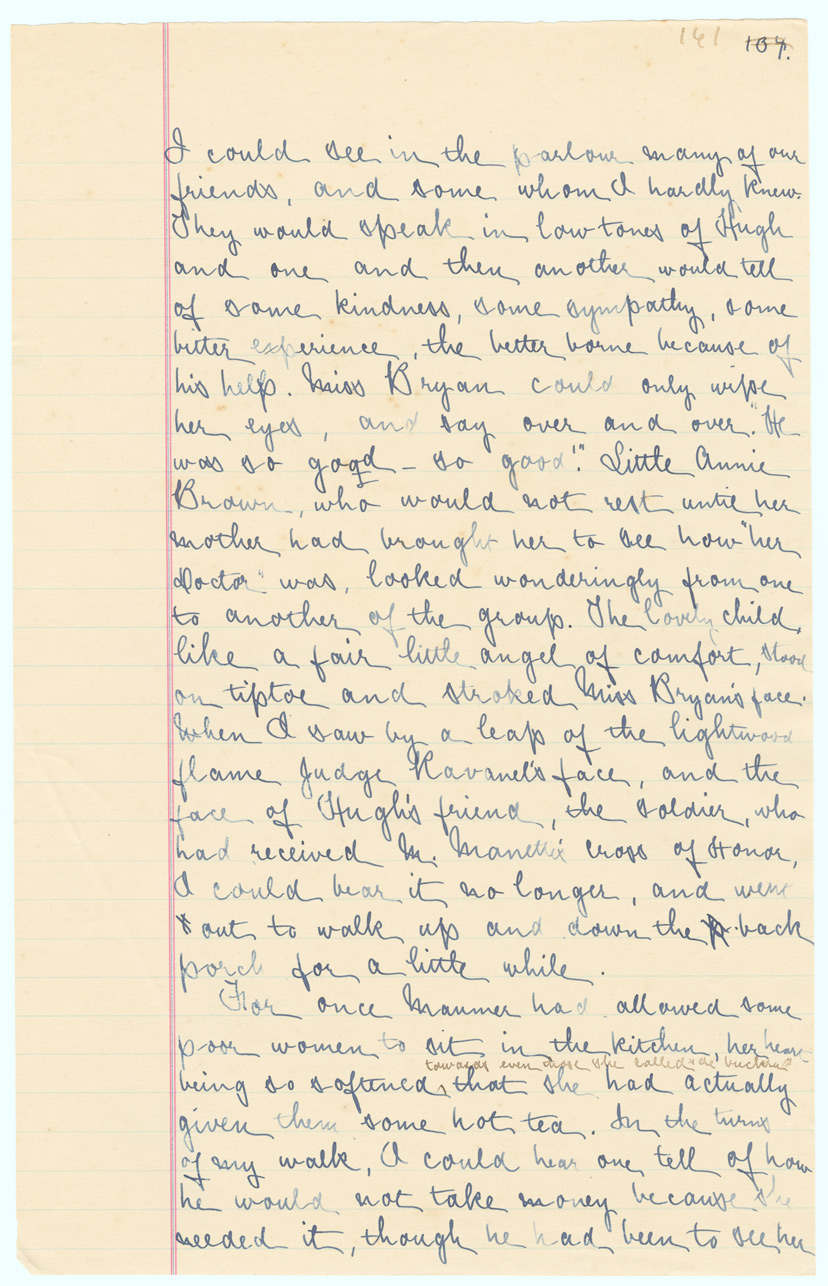 161 167.
I could see in the parlour many of our
friends, and some whom I hardly knew.
They would speak in low tones of Hugh
and one and then another would tell
of some kindness, some sympathy, some
bitter experience, the better borne because of
his help. Miss Bryan could only wipe
her eyes, and say over and over "He
was so good – so good!" Little Annie
Brown, who would not rest until her
mother had brought her to see how "her
Doctor" was, looked wonderingly from one
to another of the group. The lovely child,
like a fair little angel of comfort, stood
on tiptoe and stroked Miss Bryan's face.
When I saw by a leap of the lightwood
flame Judge Ravanel's face, and the
face of Hugh's friend, the soldier, who
had received M. Manette's cross of Honor,
I could bear it no longer, and went
out to walk up and down the back
porch for a little while.
For once Maumer had allowed some
poor women to sit in the kitchen, her heart
towards even those she called "de buckra"
being so softened, that she had actually
given them some hot tea. In the turns
of my walk, I could hear one tell of how
he would not take money because she
needed it, though he had been to see her